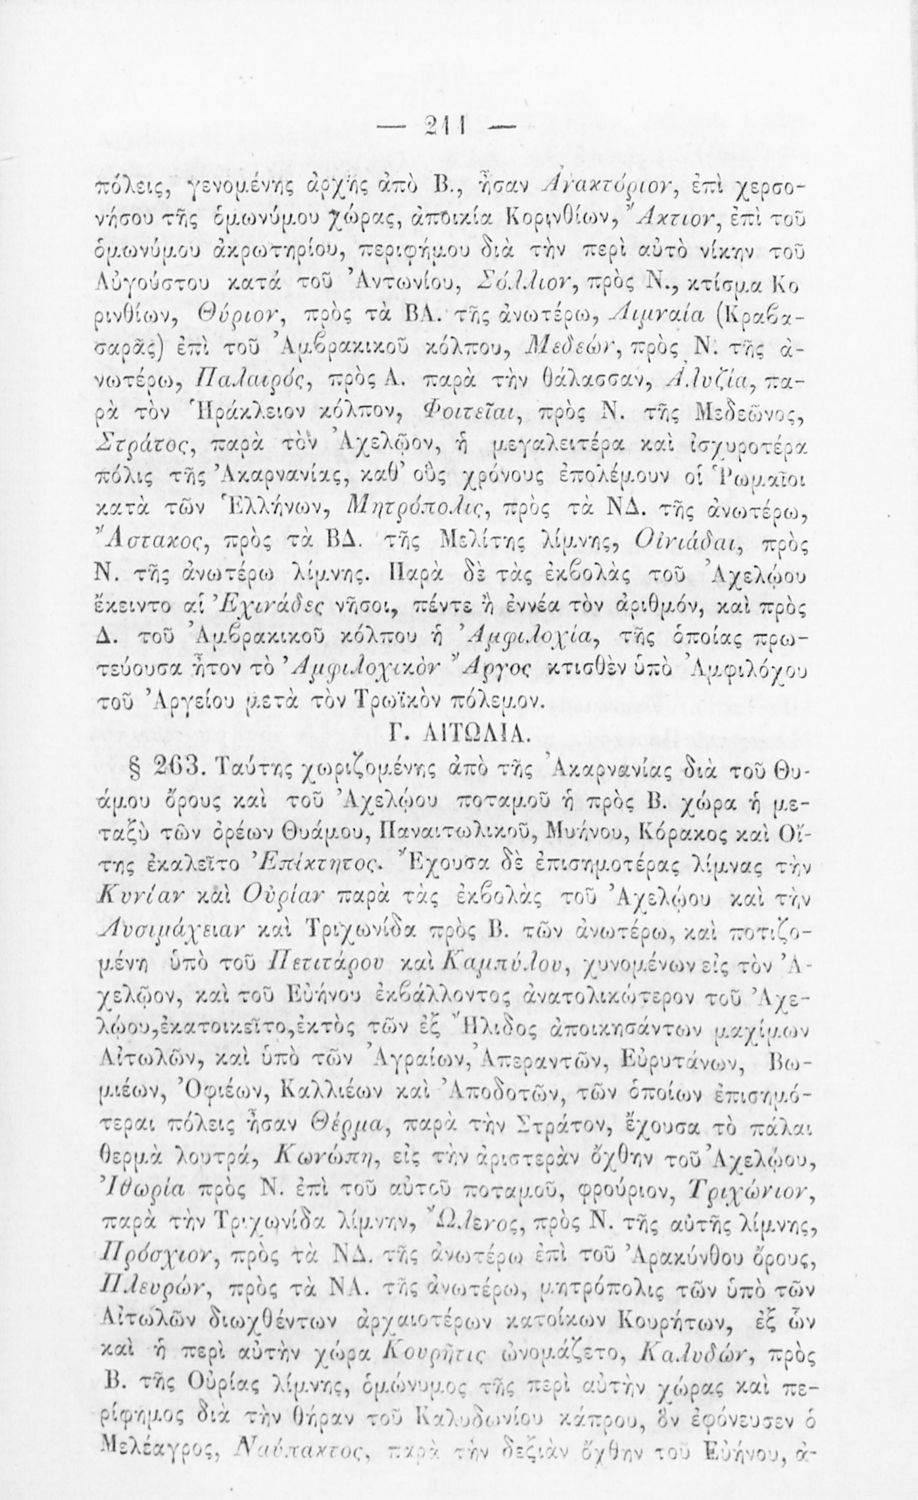 — 211 —
πόλεις, γενομένης ἀρχῆς ἀπὸ Β., ἦσαν Ἀνακτόριον, ἐπὶ χερσο-
νήσου τῆς ὁμωνύμου χώρας, ἀποικία Κορινθίων, Ἄκτιον, ἐπὶ τοῦ
ὁμωνύμου ἀκρωτηρίου, περιφήμου διὰ τὴν περὶ αὐτὸ νίκην τοῦ
Αὐγούστου κατὰ τοῦ Ἀντωνίου, Σόλλιον, πρὸς Ν., κτίσμα Κο
ρινθίων, Θύριον, πρὸς τὰ ΒΑ. τῆς ἀνωτέρω, Λιμναία (Κραβα-
σαρᾶς) ἐπὶ τοῦ Ἀμβρακικοῦ κόλπου, Μεδεών, πρὸς Ν. τῆς ἀ-
νωτέρω, Παλαιρός, πρὸς Α. παρὰ τὴν θάλασσαν, Ἀλυζία, πα-
ρὰ τὸν Ἡράκλειον κόλπον, Φοιτεῖαι, πρὸς Ν. τῆς Μεδεῶνος,
Στράτος, παρὰ τὸν Ἀχελῷον, ἡ μεγαλειτέρα καὶ ἰσχυροτέρα
πόλις τῆς Ἀκαρνανίας, καθ’ οὓς χρόνους ἐπολέμουν οἱ Ῥωμαῖοι
κατὰ τῶν Ἑλλήνων, Μητρόπολις, πρὸς τὰ ΝΔ. τῆς ἀνωτέρω,
Ἄστακος, πρὸς τὰ ΒΔ. τῆς Μελίτης λίμνης, Οἰνιάδαι, πρὸς
Ν. τῆς ἀνωτέρω λίμνης. Παρὰ δὲ τὰς ἐκβολὰς τοῦ Ἀχελῴου
ἔκειντο αἱ Ἐχινάδες νῆσοι, πέντε ἢ ἐννέα τὸν ἀριθμόν, καὶ πρὸς
Δ. τοῦ Ἀμβρακικοῦ κόλπου ἡ Ἀμφιλοχία, τῆς ὁποίας πρω-
τεύουσα ἦτον τὸ Ἀμφιλοχικὸν Ἄργος κτισθὲν ὑπὸ Ἀμφιλόχου
τοῦ Ἀργείου μετὰ τὸν Τρωϊκὸν πόλεμον.
Γ. ΑΙΤΩΛΙΑ.
§ 263. Ταύτης χωριζομένης ἀπὸ τῆς Ἀκαρνανίας διὰ τοῦ Θυ-
άμου ὄρους καὶ τοῦ Ἀχελῴου ποταμοῦ ἡ πρὸς Β. χώρα ἡ με-
ταξὺ τῶν ὀρέων Θυάμου, Παναιτωλικοῦ, Μυήνου, Κόρακος καὶ Οἴ-
της ἐκαλεῖτο Ἐπίκτητος. Ἔχουσα δὲ ἐπισημοτέρας λίμνας τὴν
Κυνίαν καὶ Οὐρίαν παρὰ τὰς ἐκβολὰς τοῦ Ἀχελῴου καὶ τὴν
Λυσιμάχειαν καὶ Τριχωνίδα πρὸς Β. τῶν ἀνωτέρω, καὶ ποτιζο-
μένη ὑπὸ τοῦ Πετιτάρου καὶ Καμπύλου, χυνομένων εἰς τὸν Ἀ-
χελῷον, καὶ τοῦ Εὐήνου ἐκβάλλοντος ἀνατολικώτερον τοῦ Ἀχε-
λῴου, ἐκατοικεῖτο, ἐκτὸς τῶν ἐξ Ἤλιδος ἀποικησάντων μαχίμων
Αἰτωλῶν, καὶ ὑπὸ τῶν Ἀγραίων, Ἀπεραντῶν, Εὐρυτάνων, Βω-
μιέων, Ὀφιέων, Καλλιέων καὶ Ἀποδοτῶν, τῶν ὁποίων ἐπισημό-
τεραι πόλεις ἦσαν Θέρμα, παρὰ τὴν Στράτον, ἔχουσα τὸ πάλαι
θερμὰ λουτρά, Κωνώπη, εἰς τὴν ἀριστερὰν ὄχθην τοῦ Ἀχελῴου,
Ἰθωρία πρὸς Ν. ἐπὶ τοῦ αὐτοῦ ποταμοῦ, φρούριον, Τριχώνιον,
παρὰ τὴν Τριχωνίδα λίμνην, Ὤλενος, πρὸς Ν. τῆς αὐτῆς λίμνης,
Πρόσχιον, πρὸς τὰ ΝΔ. τῆς ἀνωτέρω ἐπὶ τοῦ Ἀρακύνθου ὄρους,
Πλευρών, πρὸς τὰ ΝΑ. τῆς ἀνωτέρω, μητρόπολις τῶν ὑπὸ τῶν
Αἰτωλῶν διωχθέντων ἀρχαιοτέρων κατοίκων Κουρήτων, ἐξ ὧν
καὶ ἡ περὶ αὐτὴν χώρα Κουρῆτις ὠνομάζετο, Καλυδών, πρὸς
Β. τῆς Οὐρίας λίμνης, ὁμώνυμος τῆς περὶ αὐτὴν χώρας καὶ πε-
ρίφημος διὰ τὴν θήραν τοῦ Καλυδωνίου κάπρου, ὃν ἐφόνευσεν ὁ
Μελέαγρος, Ναύπακτος, παρὰ τὴν δεξιὰν ὄχθην τοῦ Εὐήνου, ἀ-